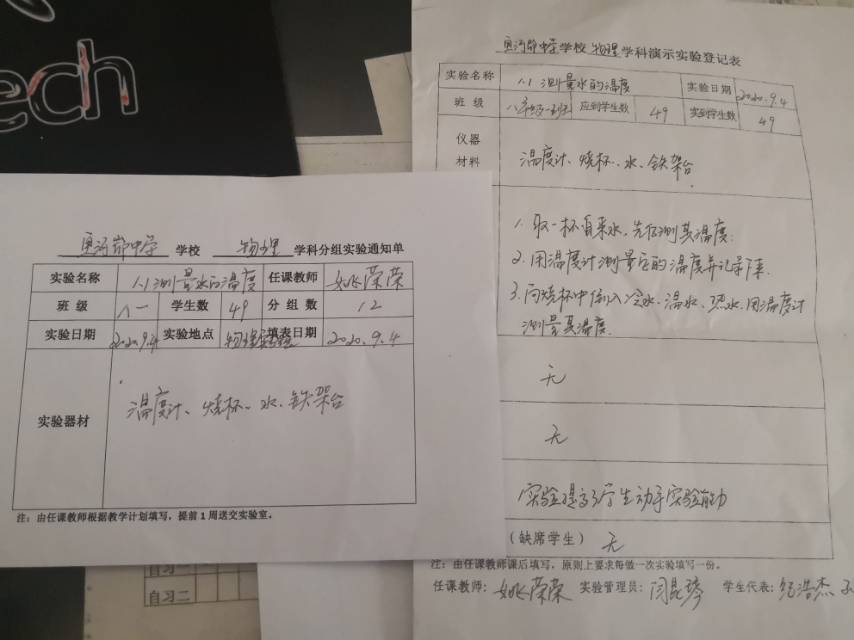 ech
学校 物理 学科演示实验登记表
实验名称 1.1 测量水的温度 实验日期 2020.9.4
班 级 八年级一班 应到学生数 49 实到学生数 49
仪器
材料
温度计、烧杯、水、铁架台
1. 取一杯自来水,先估测其温度.
2. 用温度计测量它的温度并记录下来.
3. 向烧杯中倒入冷水、温水、热水.用温度计
测量其温度.
无
无
实验提高了学生动手实验能力
(缺席学生) 无
注:由任课教师课后填写,原则上要求每做一次实验填写一份。
任课教师: 姚荣荣 实验管理员: 闫昆 学生代表: 纪浩杰
中学 学校 物理 学科分组实验通知单
实验名称 1.1 测量水的温度 任课教师 姚荣荣
班 级 八一 学生数 49 分 组 数 12
实验日期 2020.9.4 实验地点 物理实验室 填表日期 2020.9.4
实验器材 温度计、烧杯、水、铁架台
注:由任课教师根据教学计划填写,提前1周送交实验室。
自习一
自习二